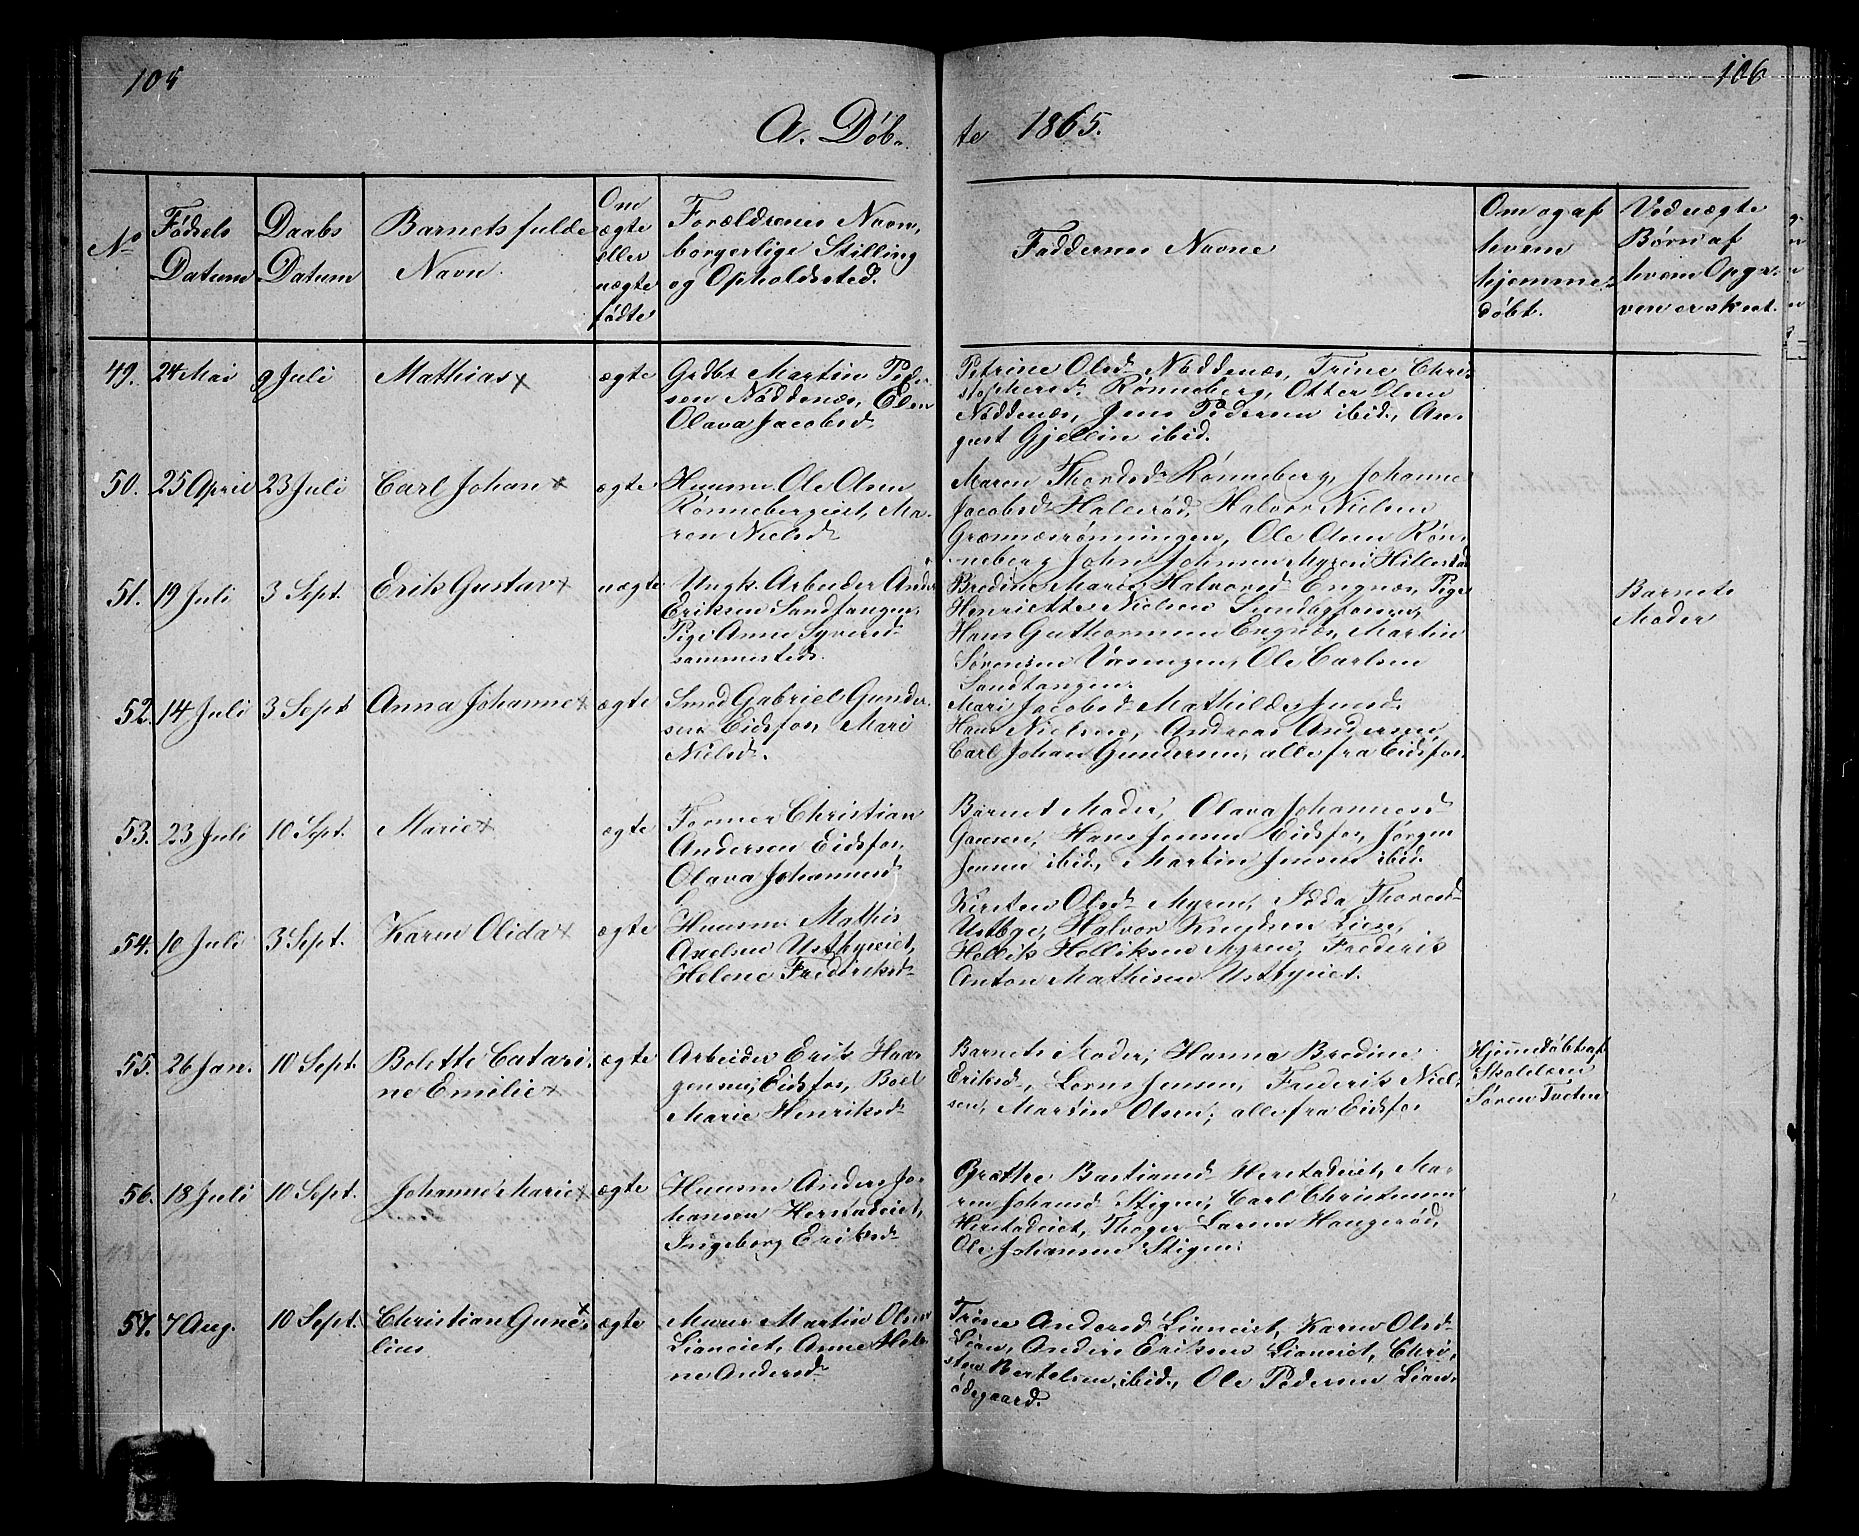 105
106
A. Døb-
te 1865.
No
Fødsels Datum
Daabs Datum
Barnets fulde Navn.
Om ægte eller uægte født
Forældrenes Navn, borgerlige Stilling og Opholdssted.
Faddernes Navne
Om og af hvem hjemme-døbt.
Ved uægte Børn af hvem Opgaven er skeet.
49. 24 Mai 9 Juli Mathias x ægte
Grdbr Martin Peder-
sen Naddenæs, Elen
Olava Jacobsd.
Petrine Olsd. Naddenæs, Trine Chri-
stophersd. Rønneberg, Otter Olsen
Naddenæs, Jens Pedersen ibid., Au-
gust Gjellin ibid.
50. 25 April 23 Juli Carl Johan x ægte
Huusm. Ole Olsen
Rønnebergeiet, Ma-
ren Nielsd.
Maren Thordsd. Rønneberg, Johanne
Jacobsd. Hallerød, Halvor Nielsen
Grønnæsrønningen, Ole Olsen Røn-
neberg, John Johnsen Myren Hillestad
51. 19 Juli 3 Sept. Erik Gustav x uægte
Ungk. Arbeider Anders
Eriksen Sandtangen,
Pige Anne Syversd.
sammesteds.
Bredine Marie Halvorsd. Engnæs, Pige
Henriette Nielsen Sundagfossen,
Hans Guthormsen Engnæs, Martin
Sørensen Vasengen, Ole Carlsen
Sandtangen.
Barnets
Moder
52. 14 Juli 3 Sept Anna Johanne x ægte
Smed Gabriel Gunder-
sen Eidsfos, Mari
Nielsd.
Mari Jacobsd. Mathilde Jensd.
Hans Nielsen, Andreas Andersen,
Carl Johan Gundersen, alle fra Eidsfos.
53. 23 Juli 10 Sept. Marie x ægte
Former Christian
Andersen Eidsfos,
Olava Johannesd.
Barnets Moder, Olava Johannesd.
Gaasen, Hans Jensen Eidsfos, Jørgen
Jensen ibid., Martin Jensen ibid.
54. 10 Juli 3 Sept. Karen Olida x ægte
Huusm. Mathis
Axelsen Usthyeiet,
Helene Frederiksd.
Kirsten Olsd. Myren, Idda Thoresd.
Ustbye, Halvor Knudsen Lien,
Hellik Helliksen Myren, Frederik
Anton Mathisen Usthyeiet.
55. 26 Jan. 10 Sept. Bolette Catari-
ne Emilie x
ægte
Arbeider Erik Haa-
gensen, Eidsfos, Boel
Marie Henriksd.
Barnets Moder, Hanna Bredine
Eriksd., Lorens Jensen, Frederik Niel-
sen, Martin Olsen, alle fra Eidsfos
Hjemmedøbt af
Skolelærer
Søren Tveten
56. 18 Juli 10 Sept. Johanne Marie x ægte
Huusm Anders Jo-
hansen Herstadeiet,
Ingeborg Eriksd.
Grethe Bastiansd. Herstadeiet, Ma-
ren Johansd. Stigen, Carl Christensen
Herstadeiet, Thoger Larsen Haugerød,
Ole Johansen Stigen.
57. 7 Aug. 10 Sept. Christian Gune- x
lius
ægte
Murer Martin Olsen
Lianeiet, Anne Hele-
ne Andersd.
Trine Andersd. Lianeiet, Karen Olsd.
Lian, Anders Eriksen Lianeiet, Chri-
sten Bertelsen, ibid., Ole Pedersen Lian-
ødegaard.